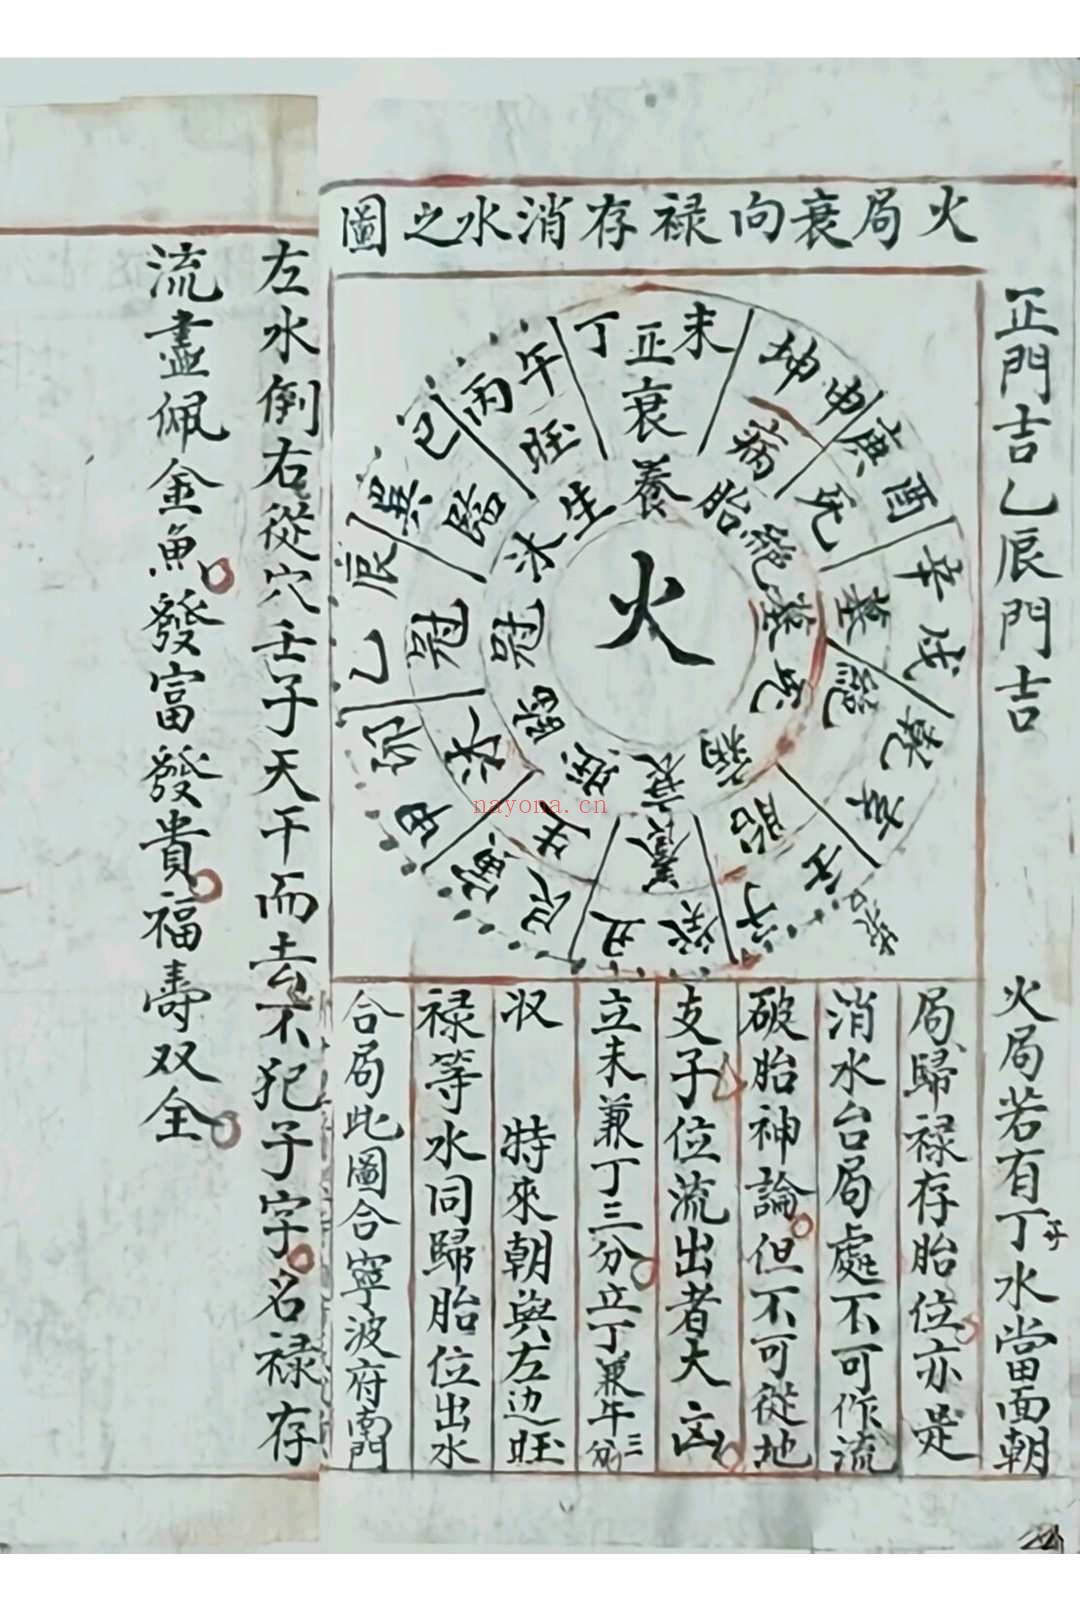 正門吉乙辰門吉
火局衰向禄存消水之圖
未
正
丁
衰
養
坤申
病
胎
庚酉
死
絕
辛戌
墓
墓
乾
絕
死
壬子
胎
病
癸丑
養
衰
艮寅
生
旺
甲卯
沐
臨
乙辰
冠
冠
巽巳
臨
沐
丙午
旺
生
火
火局若有丁水當面朝
局歸禄存胎位亦是
消水台局處不可作流
破胎神論但不可從地
支子位流出者大凶
立未兼丁三分立丁兼午三分
収 特來朝與左边旺
禄等水同歸胎位出水
合局此圖合寧波府南門
左水倒右從穴壬子天干而去不犯子字名禄存
流盡佩金魚發富發貴福壽双全
nayona.cn